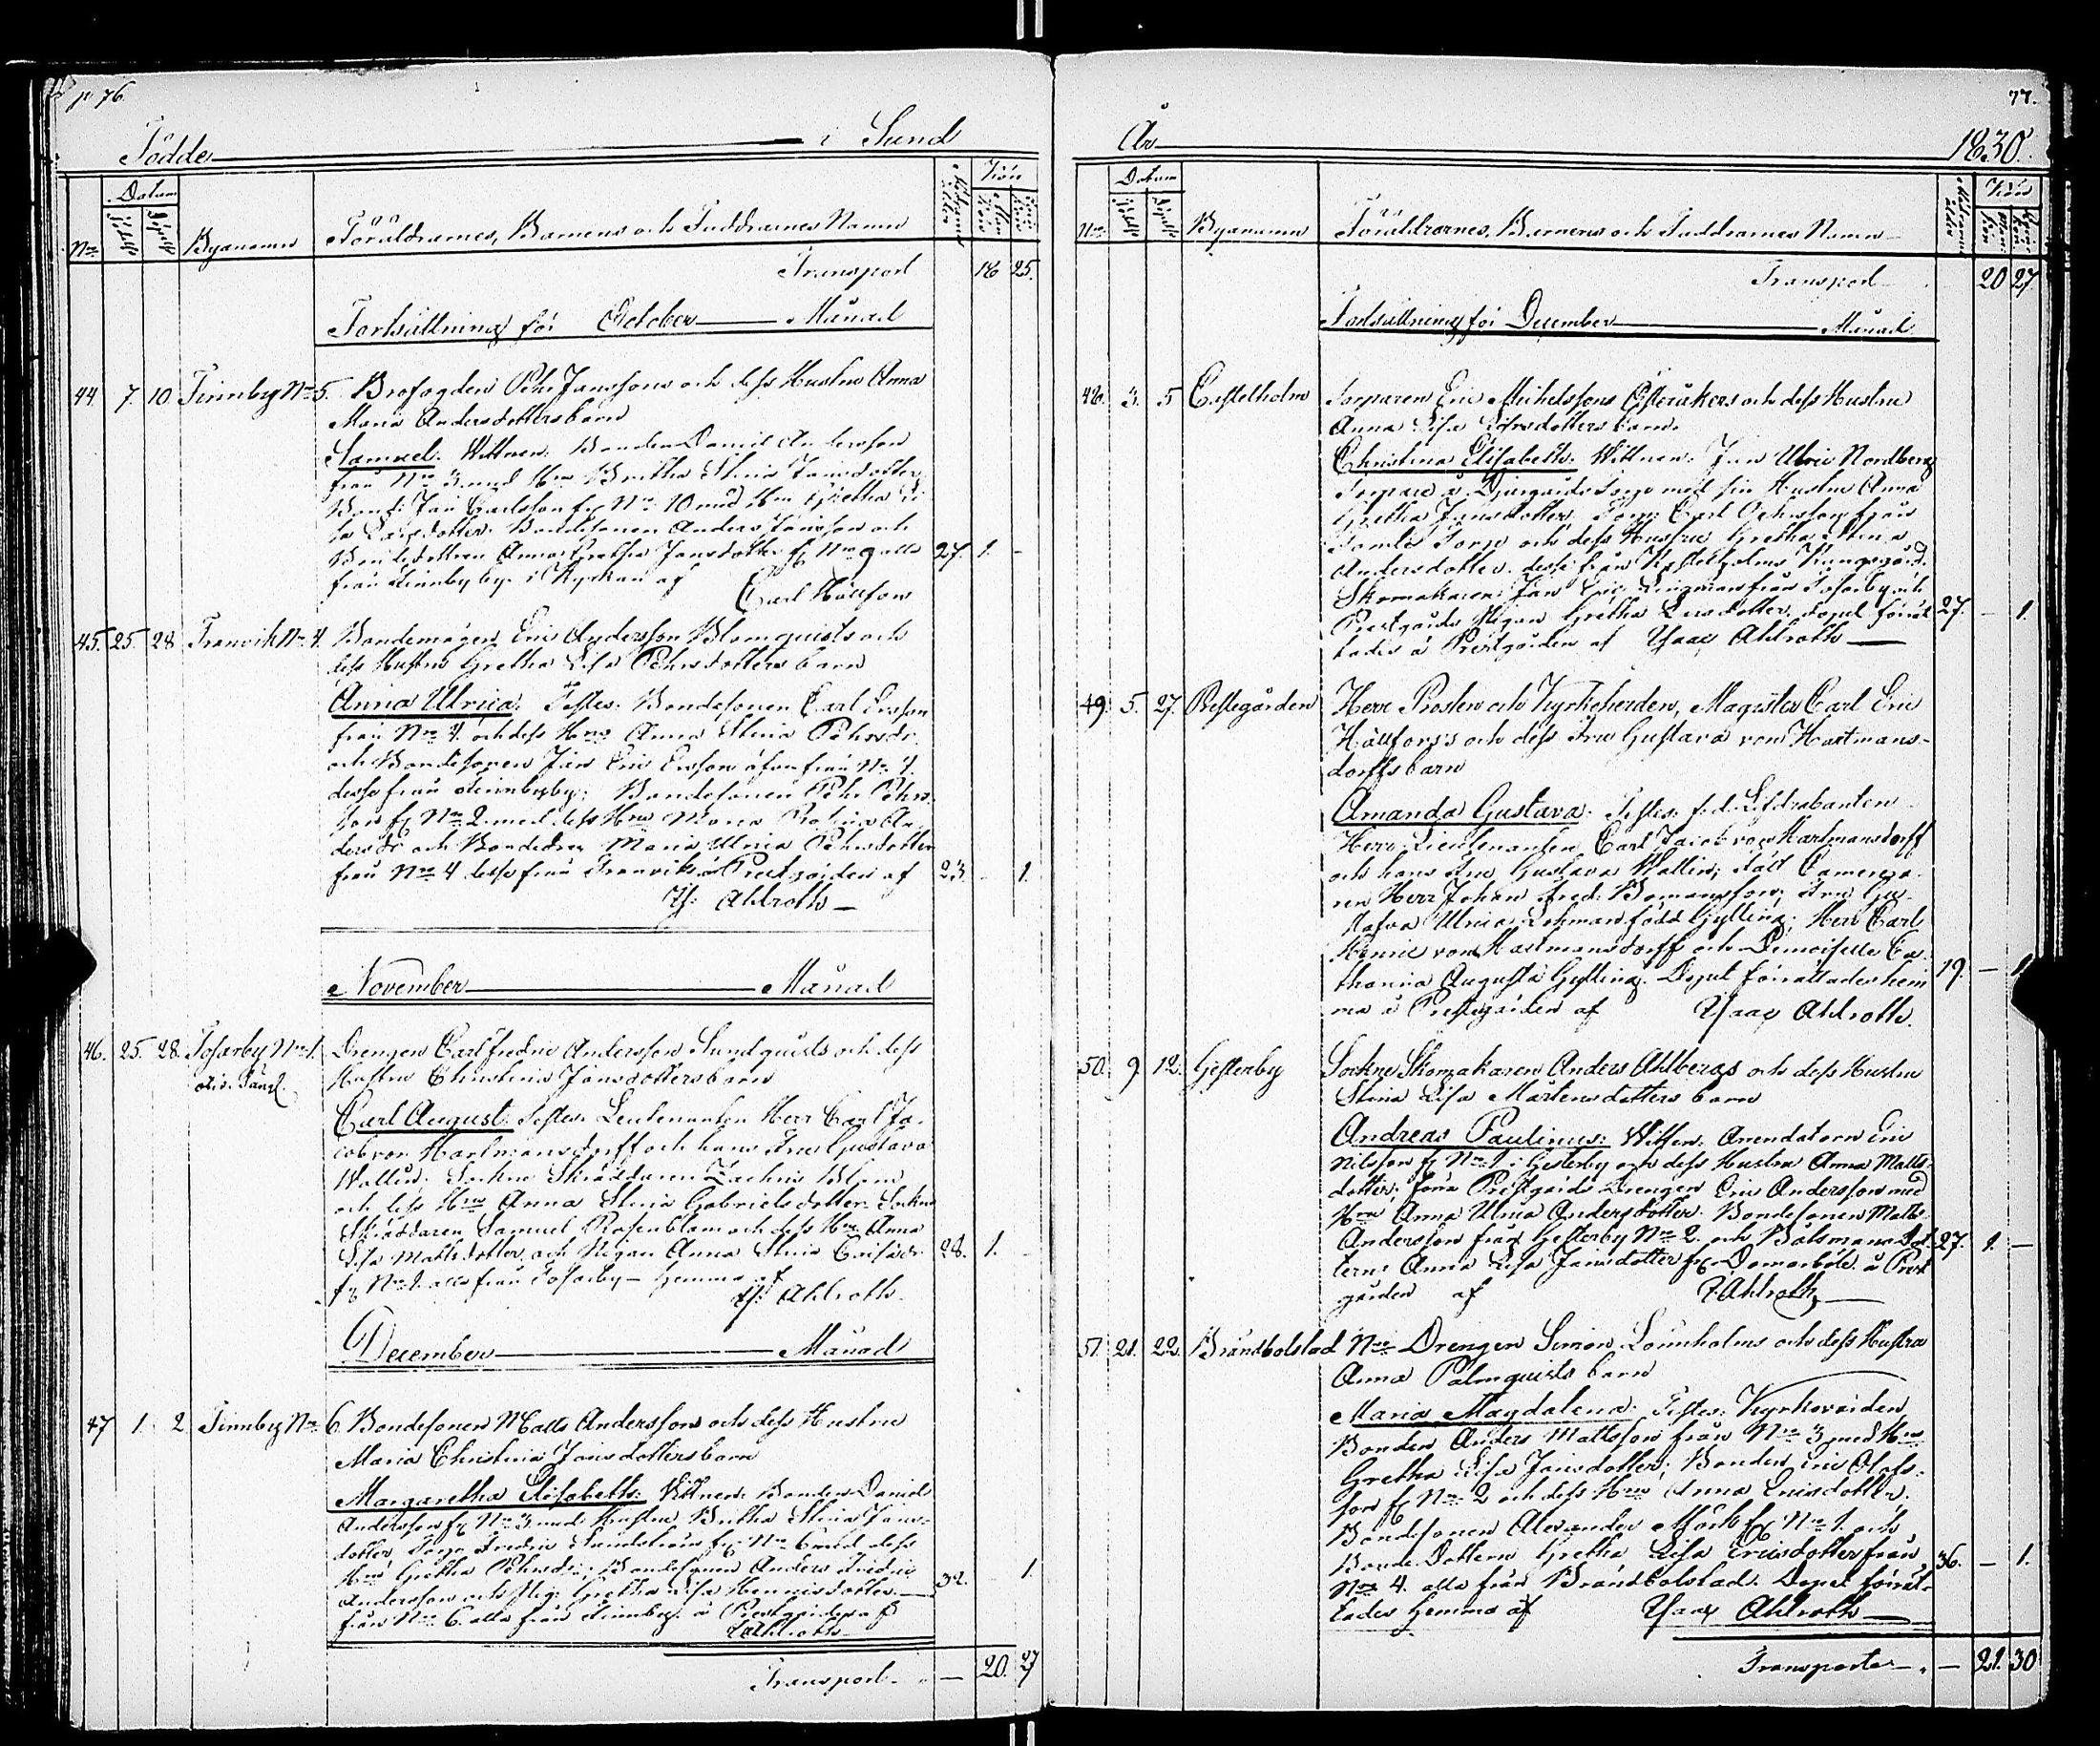 p 76.
Födde i Sund
Nro Datum Byanamn Föräldrarnes, Barnens och Faddrarnes Namn Kön
Transport 18 25.
Fortsättning för October Månad
44. 7. 10. Finnby No 5. Brofogden Pehr Janssons och dess Hustru Anna
Maria Andersdotters barn
Samuel. Wittnen: Bonden Daniel Andersson
från Nro 3 med Hru Bretha Stina Jansdotter
Bond: Jan Carlsson fr Nro 10 med Hru Gretha Li
sa Larsdotter. Bondesonen Anders Jansson och
Bondedottren Anna Gretha Jansdotter fr Nro 9 alla 27. 1. -
från Finnby by. i Kyrkan af
Carl Hällfors
45. 25. 28 Tranvik No 4. Bondemågen Eric Andersson Blomquists och
dess Hustru Gretha Lisa Pehrsdotters barn
Anna Ulrica. Testes: Bondesonen Carl Ersson
från Nro 4. och dess Hru Anna Stina Pehrsdr.
och Bondesonen Jan Eric Ersson äfven från No 4.
desse från Finnby by; Bondesonen Pehr Pehrs-
son fr Nro 2. med dess Hru Maria Rosina An-
dersdr och Bondedrn Maria Ulrica Pehrsdotter
från Nro 4 desse från Tranvik å Prestgården af 23. - 1.
Is: Ahlroth
November Månad
46. 25. 28. Tosarby No 1. Drengen Carl Fredric Andersson Sundquists och dess
Hustru Christina Jansdotters barn
Carl August. Testes: Lieutenanten Herr Carl Ja-
cob von Hartmansdorff och hans Fru Gustava
Wallin. Sockne Skräddaren Zachris Blom
och dess Hru Anna Stina Gabrielsdotter. Sockne
Skräddaren Samuel Rosenblom och dess Hru Anna
Lisa Mattsdotter, och Pigan Anna Stina Ericsdr. 28. 1. -
fr No 1. alla från Tosarby - hemma af
Is: Ahlroth.
December Månad
47 1. 2. Finnby No 6. Bondesonen Matts Anderssons och dess Hustru
Maria Christina Jansdotters barn
Margaretha Elisabeth. Wittnen: Bonden Daniel
Andersson fr No 3 med Hustru Bretha Stina Jans-
dotter, Torp: Fredric Sundström fr No 6 med dess
Hru Gretha Pehrsdr; Bondesonen Anders Fredric
Andersson och Pig: Gretha Lisa Henricsdotter 32. - 1.
från No 6. alla från Finnby. å Prestgården af
I Ahlroth
Transport - 20. 27
77.
År 1830.
Nro Datum Byanamn Föräldrarnes, Barnens och Faddrarnes Namn Kön
Transport 20 27
Fortsättning för December Månad
48. 3. 5 Castelholm Torparen Eric Michelssons Österåkers och dess Hustru
Anna Lisa Larsdotters barn.
Christina Elisabeth. Wittnen: Jan Ulric Nordberg
Torpare å Djurgårds Torp med sin Hustru Anna
Gretha Jansdotter. Torp: Carl Pehrsson från
Gamla Torp och dess Hustru Gretha Stina
Andersdotter. desse från Kastelholms Kungsgård.
Skomakaren Jan Eric Lingman från Tosarby och
Prestgårds Pigan Gretha Larsdotter. Dopet förrät- 27. - 1.
tades å Prestgården af Isaac Ahlroth
49. 5. 27. Prestegården Herr Prosten och Kyrkoherden, Magister Carl Eric
Hällfors's och dess Fru Gustava von Hartmans-
dorffs barn
Amanda Gustava. Testes: f.d. Lifdrabanten
Herr Lieutenanten Carl Jacob von Hartmansdorff
och hans Fru Gustava Wallin; Fält Camere-
ren Herr Johan Fred: Bomansson; Fru Gu-
stafva Ulrica Lohman född Gylling; Herr Carl
Henric von Hartmansdorff och Demoiselle Ca-
tharina Augusta Gylling. Dopet förrättades hem- 19. - 1
ma å Prestgården af Isaac Ahlroth.
50. 9. 12. Gesterby Sockne Skomakaren Anders Ahlbergs och dess Hustru
Stina Lisa Mårtensdotters barn
Andreas Paulinus. Wittnen: Arrendatorn Eric
Nilsson fr No 1 i Gesterby och dess Hustru Anna Matts-
dotter. förra Prestgårds Drengen Eric Andersson med
Hru Anna Ulrica Andersdotter. Bondesonen Matts
Andersson från Gesterby Nro 2. och Båtsmans Dot- 27. 1. -
tern Anna Lisa Jansdotter fr Domarböle. å Prest
gården af I Ahlroth
51. 21. 22. Brändbolstad Nro Drengen Simon Lönnholms och dess Hustru
Anna Palmquists barn
Maria Magdalena. Testes: Kyrkovärden
Bonden Anders Mattsson från Nro 3 med Hru
Gretha Lisa Jansdotter; Bonden Eric Olofs-
son fr No 2 och dess Hru Anna Ericsdotter.
Bondesonen Alexander Mörk fr No 1. och
Bonde Dottern Gretha Lisa Ericsdotter från 36. - 1.
Nro 4. alla från Brändbolstad. Dopet förrät-
tades hemma af Isaac Ahlroth
Transporter - 21. 30